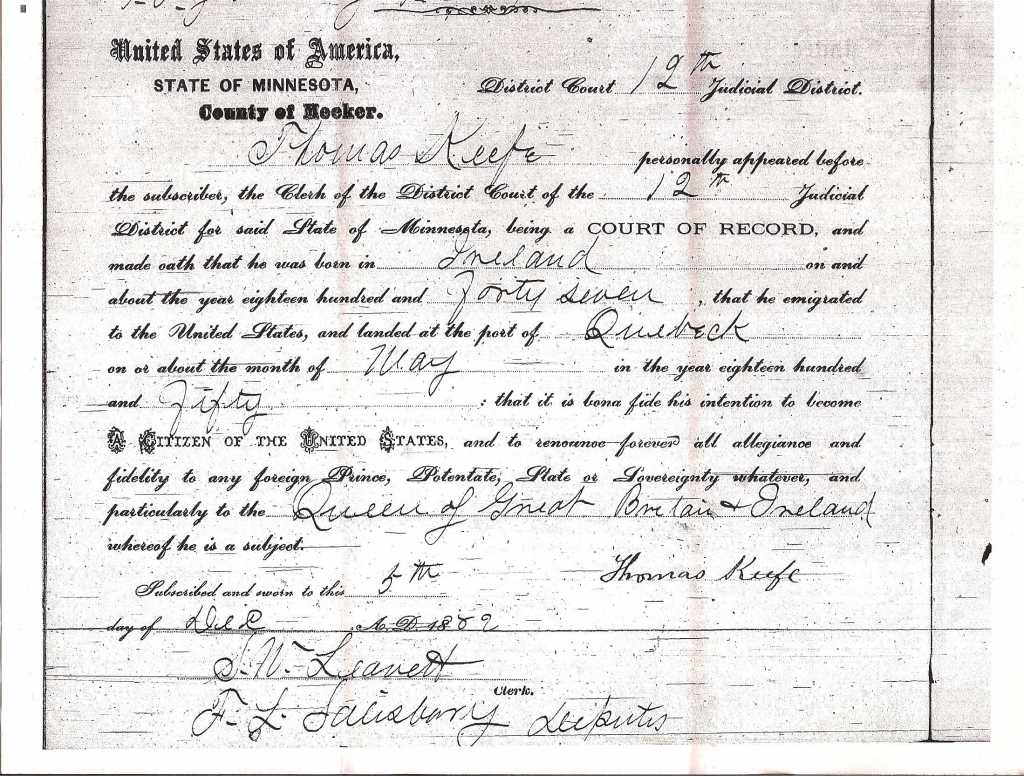 United States of America,
STATE OF MINNESOTA, District Court 12th Judicial District.
County of Meeker.
Thomas Keefe personally appeared before
the subscriber, the Clerk of the District Court of the 12th Judicial
District for said State of Minnesota, being a COURT OF RECORD, and
made oath that he was born in Ireland on and
about the year eighteen hundred and forty seven, that he emigrated
to the United States, and landed at the port of Quebeck
on or about the month of May in the year eighteen hundred
and Fifty : that it is bona fide his intention to become
A CITIZEN OF THE UNITED STATES, and to renounce forever all allegiance and
fidelity to any foreign Prince, Potentate, State or Sovereignty whatever, and
particularly to the Queen of Great Britain & Ireland
whereof he is a subject.
Subscribed and sworn to this 5th Thomas Keefe
day of Dec A. D. 1882
Clerk.
F. L. Salisbury